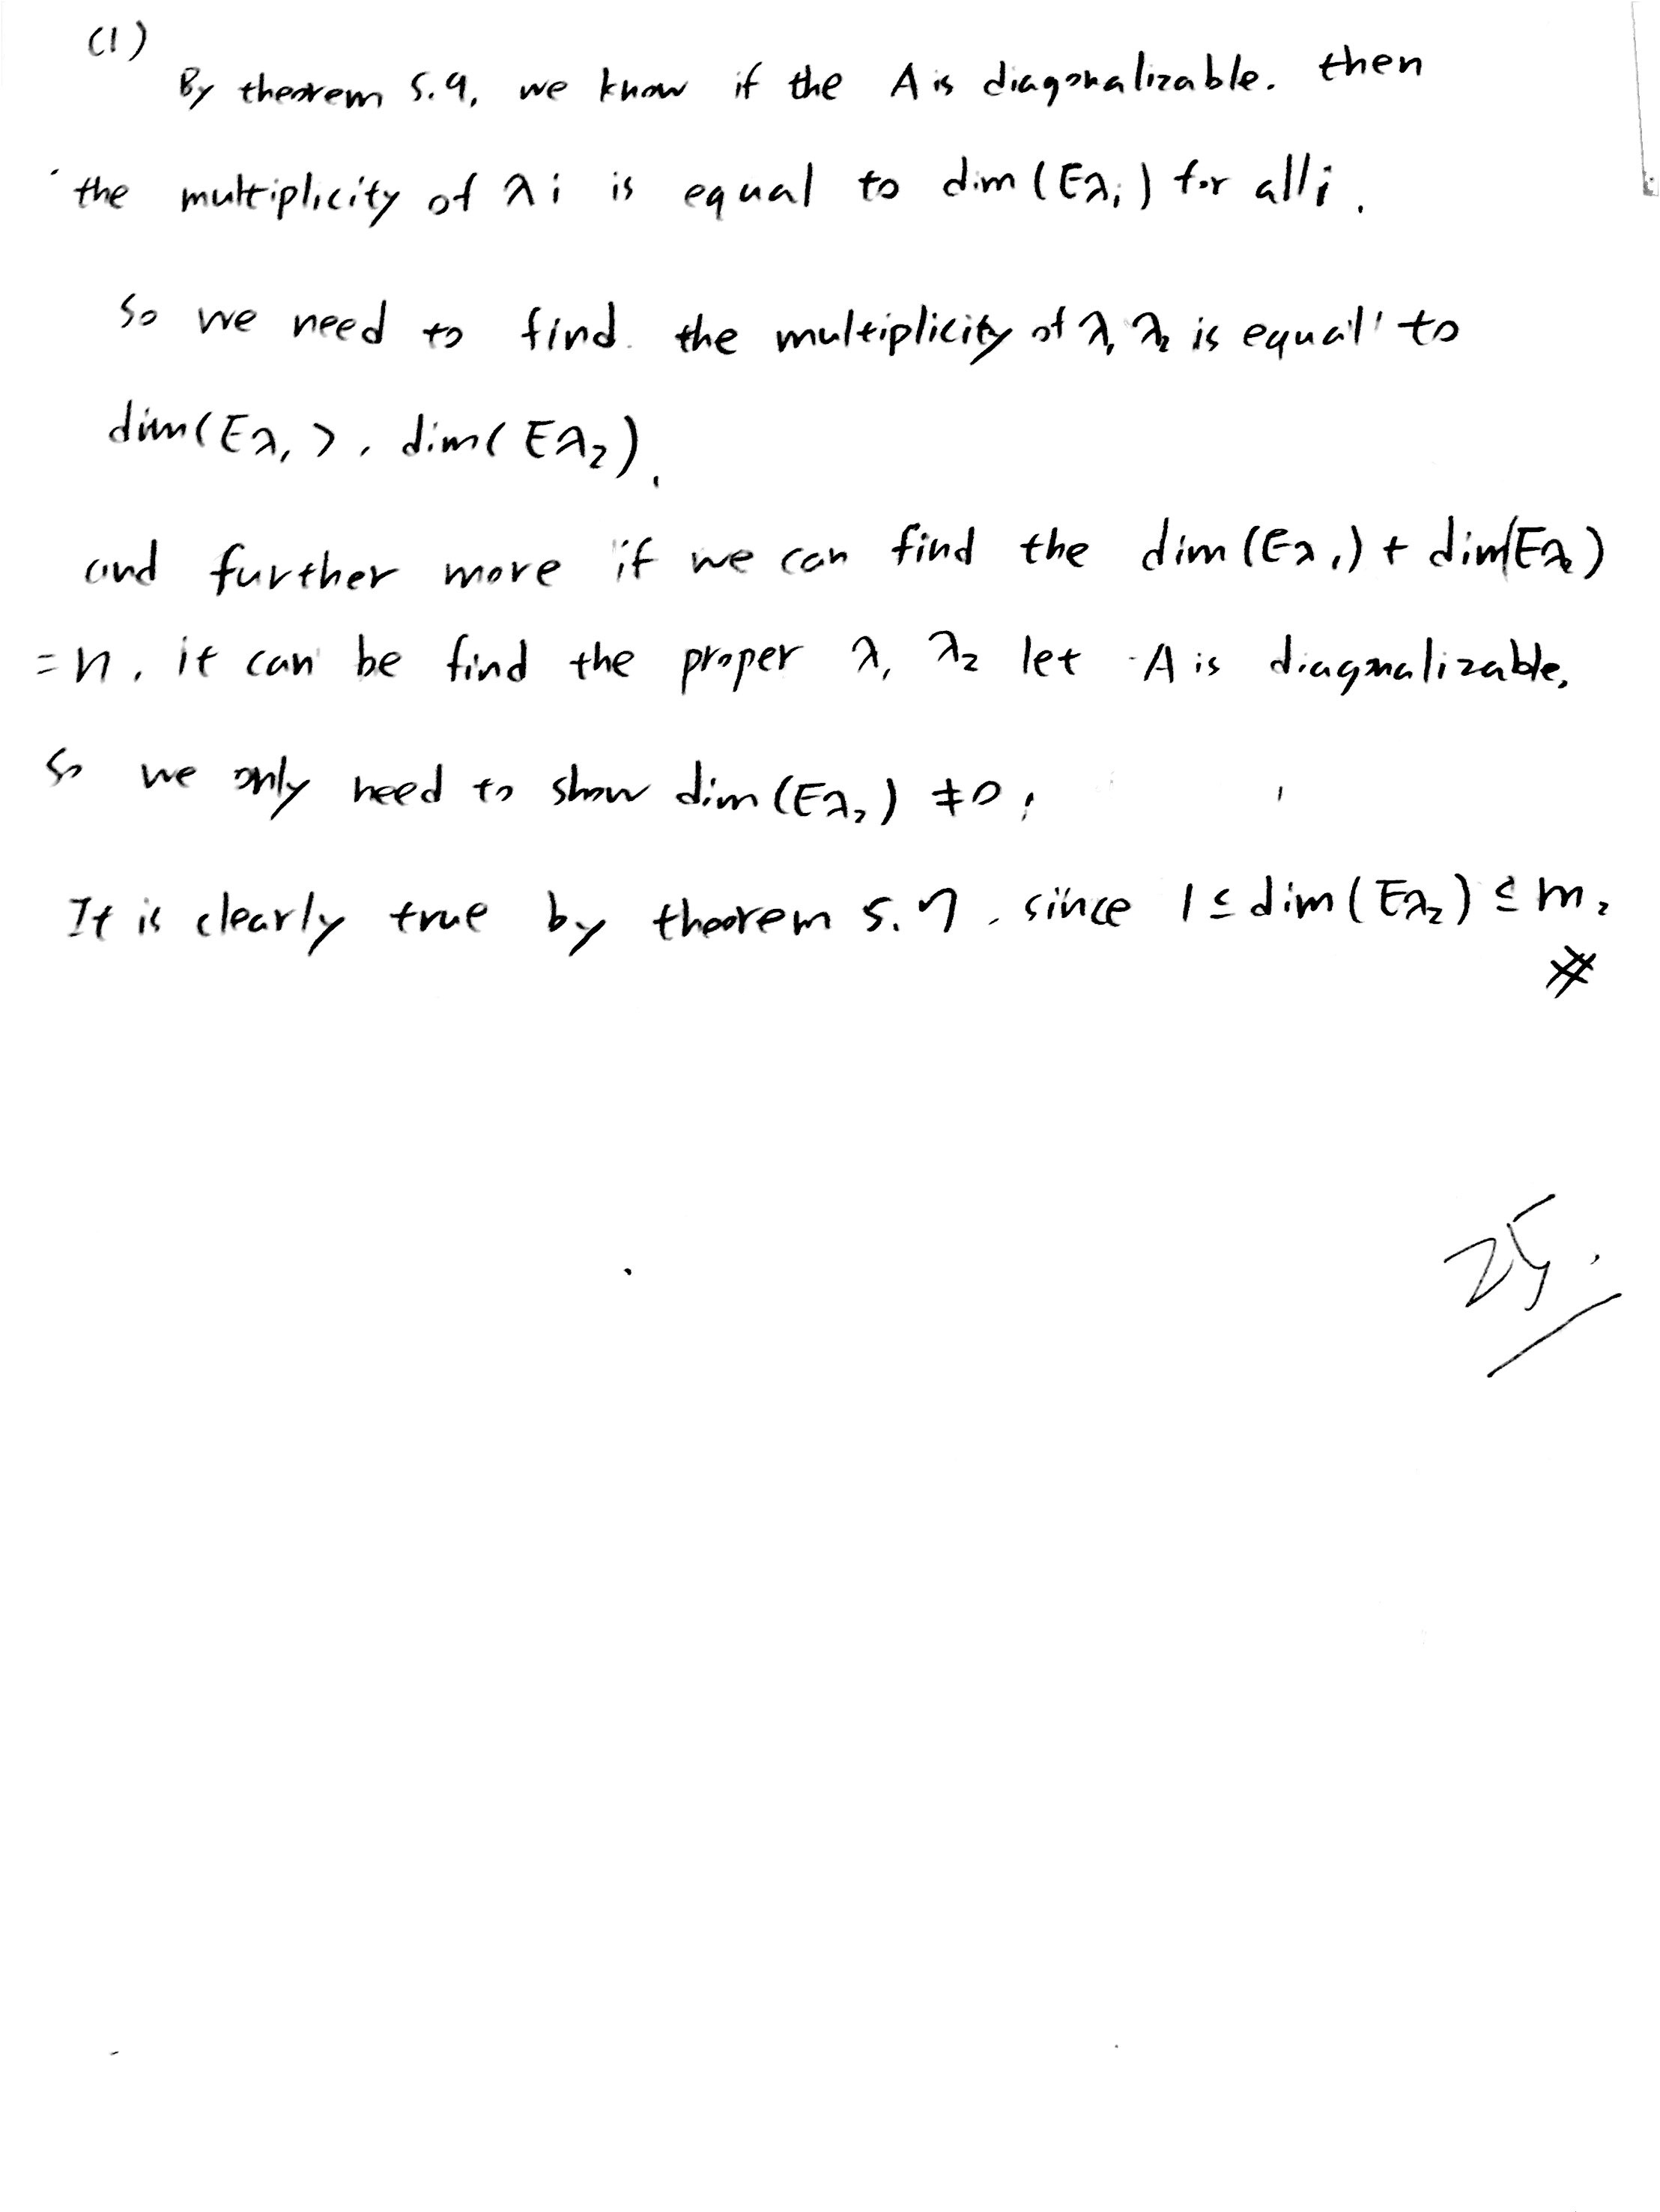 (1)
By theorem 5.9, we know if the A is diagonalizable. then
the multiplicity of λi is equal to dim (Eλi) for all i.
So we need to find. the multiplicity of λ1 λ2 is equal to
dim(Eλ1), dim(Eλ2),
and further more if we can find the dim (Eλ1) + dim(Eλ2)
= n, it can be find the proper λ1 λ2 let A is diagonalizable.
So we only need to show dim (Eλ2) ≠ 0,
It is clearly true by theorem 5.7, since 1 ≤ dim (Eλ2) ≤ m2
#
25